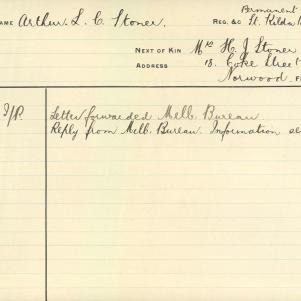 Permanent
NAME Arthur. L. C. Stoner. REG. &c St. Kilda
NEXT OF KIN Mrs H. J. Stoner
ADDRESS 13. Coke Street
Norwood
Letter forwarded Melb. Bureau
Reply from Melb. Bureau. Information